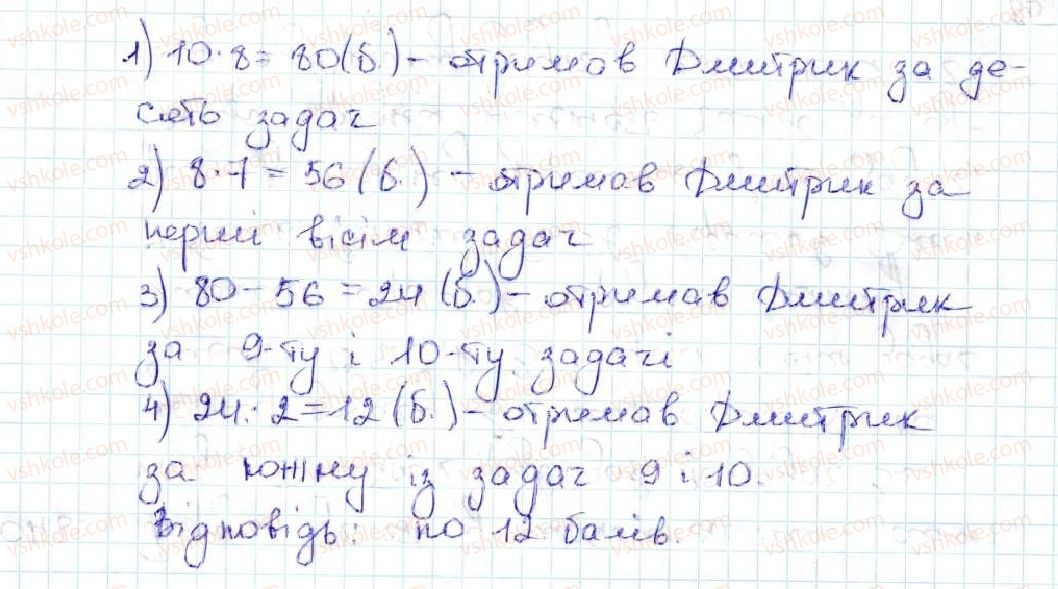 1) 10·8=80(б.) – отримав Дмитрик за де-
сять задач
2) 8·7=56(б.) – отримав Дмитрик за
перші вісім задач
3) 80–56=24(б.) – отримав Дмитрик
за 9-ту і 10-ту задачі
4) 24:2=12(б.) – отримав Дмитрик
за кожну із задач 9 і 10.
Відповідь: по 12 балів.